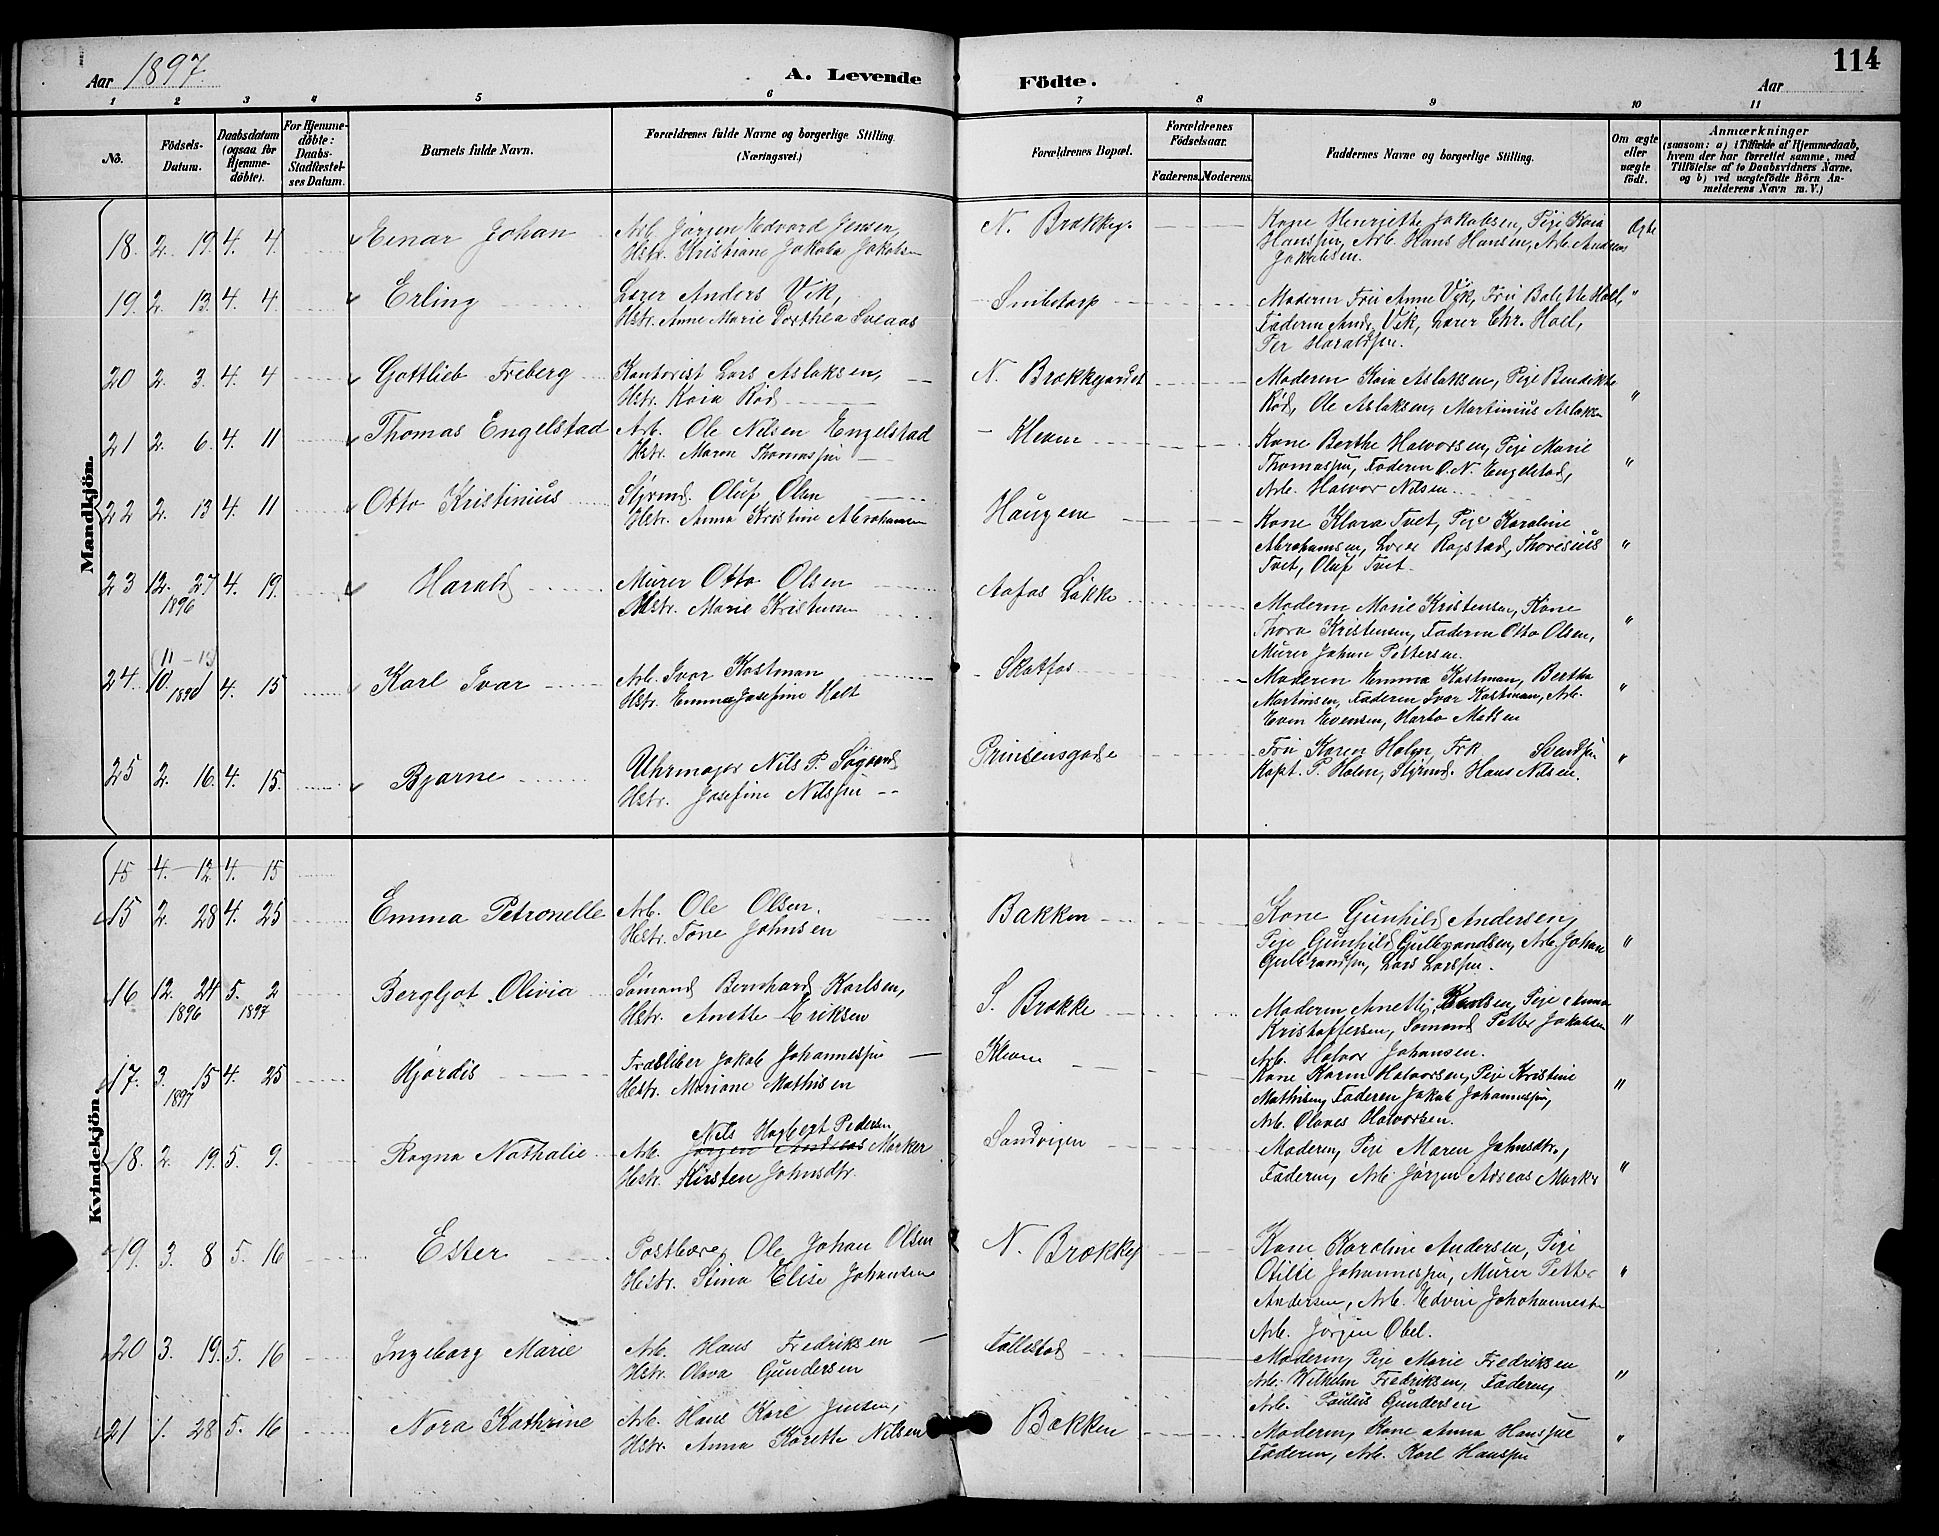 Aar 1897.
A. Levende
Födte.
Aar
114
1 2 3 4 5 6 7 8 9 10 11
No.
Födsels-
Datum.
Daabsdatum
(ogsaa for
Hjemme-
döbte).
For Hjemme-
döbte:
Daabs-
Stadfæstel-
ses Datum.
Barnets fulde Navn.
Forældrenes fulde Navne og borgerlige Stilling.
(Næringsvei.)
Forældrenes Bopæl.
Forældrenes
Födselsaar.
Faderens. Moderens.
Faddernes Navne og borgerlige Stilling.
Om ægte
eller
uægte
födt.
Anmærkninger
(saasom: a) i Tilfælde af Hjemmedaab,
hvem der har forrettet samme, med
Tilföielse af to Daabsvidners Navne,
og b) ved uægtefödte Börn An-
melderens Navn m. V.)
Mandkjön.
18. 2. 19. 4. 4. Einar Johan
Arb. Jørgen Edvard Jensen,
Hstr. Kristiane Jakoba Jakobsen
N. Brekkeg.
Kone Henriette Jakobsen, Pige Kaia
Hanssen, Arb. Hans Hansen, Arb. Andreas
Jakobsen.
Ægte
19. 2. 13. 4. 4. Erling
Lærer Anders Vik,
Hstr. Anne Marie Dorthea Sveaas
Smietorp
Moderen Fru Anne Vik, Fru Bolette Holl, "
Faderen And. Vik, Lærer Chr. Holl,
Per Haraldsen.
20 2. 3. 4. 4 Gottlieb Freberg
Kontorist Lars Aslaksen,
Hstr. Kaia Rød
N. Brekkegardet
Moderen Kaia Aslaksen, Pige Bendikte
Rød, Ole Aslaksen, Martinius Aslaksen "
21 2. 6. 4. 11 Thomas Engelstad
Arb. Ole Nilsen Engelstad
Hstr. Maren Thomassen
Kleven
Kone Berthe Halvorsen, Pige Marie
Thomassen, Faderen O. N. Engelstad, "
Arb. Halvor Nilsen.
22 2. 13 4. 11 Otto Kristinius
Styrmd. Oluf Olsen
Hstr. Anna Kristine Abrahamsen
Haugene
Kone Klara Tvet, Pige Karoline
Abrahamsen, Lærer Rogstad, Thorisius "
Tvet, Oluf Tvet.
23 12. 27 4. 19. Harald
1896
Murer Otto Olsen
Hstr. Marie Kristensen
Aafos Løkke
Moderen Marie Kristensen, Kone
Thora Kristensen, Faderen Otto Olsen, "
Murer Johan Pettersen.
24. 10. 4. 15 Karl Ivar
Arb. Ivar Kastman
Hstr. Emma Josefine Holt
Skotfos
Moderen Emma Kastman, Bertha
Martinsen, Faderen Ivar Kastman, Arb. "
Even Evensen, Madsen
25 2. 16. 4. 15. Bjarne
Uhrmager Nils P.
Hstr. Josefine Nilssen
Prinsensgade
Fru Karen Holm, Frk. Svendsen
Kapt. P. Holm, Styrmd. Hans Nilsen. "
Kvindekjön.
15 4. 12. 4. 15
15 2. 28 4. 25 Emma Petronelle
Arb. Ole Olsen.
Hstr. Tone Johnsen
Bakken
Kone Gunhild Andersen,
Pige Gunhild Gulbrandsen, Arb. Johan "
Gulbrandsen, Lars Larssen.
16 12. 24 5. 2 Bergljot Olivia
1896 1897
Sømand Bernhard Karlsen,
Hstr. Anette Eriksen
S. Brekke
Moderen Anette Karlsen, Pige Anna
Kristoffersen, Sømand Petter Jakobsen "
Arb. Halvor Johansen.
17. 3. 15 4. 25 Hjørdis
1897
Træsliber Jakob Johannessen
Hstr. Mariane Mathisen
Kleven
Kone Karen Halvorsen, Pige Kristine
Mathisen, Faderen Jakob Johannessen, "
Arb. Olaves Halvorsen.
18. 2. 19. 5. 9. Ragna Nathalie
Nils Hagbert Pedersen
Arb. Jørgen Andreas Marker
Hstr. Kirsten Johnsdtr.
Sandvigen
Moderen, Pige Maren Johnsdtr.,
Faderen, Arb. Jørgen Adreas Marker "
19. 3. 8 5. 16 Ester
Postbærer Ole Johan Olsen
Hstr. Stina Elise Johansen
N. Brekkeg
Kone Karoline Andersen, Pige
Otilie Johannessen, Murer Petter "
Andersen, Arb. Edvin Johohannesen
Arb. Jørgen Obel.
20 3. 19. 5. 16 Ingeborg Marie
Arb. Hans Fredriksen
Hstr. Olava Gundersen
Follestad
Moderen, Pige Marie Fredriksen
Arb. Wilhelm Fredriksen, Faderen, "
Arb. Paulus Gundersen
21 1. 28 5. 16 Nora Kathrine
Arb. Hans Karl Jensen,
Hstr. Anna Karette Nilsen
Bakken
Moderen, Kone Anna Hanssen "
Faderen, Arb. Karl Hanssen